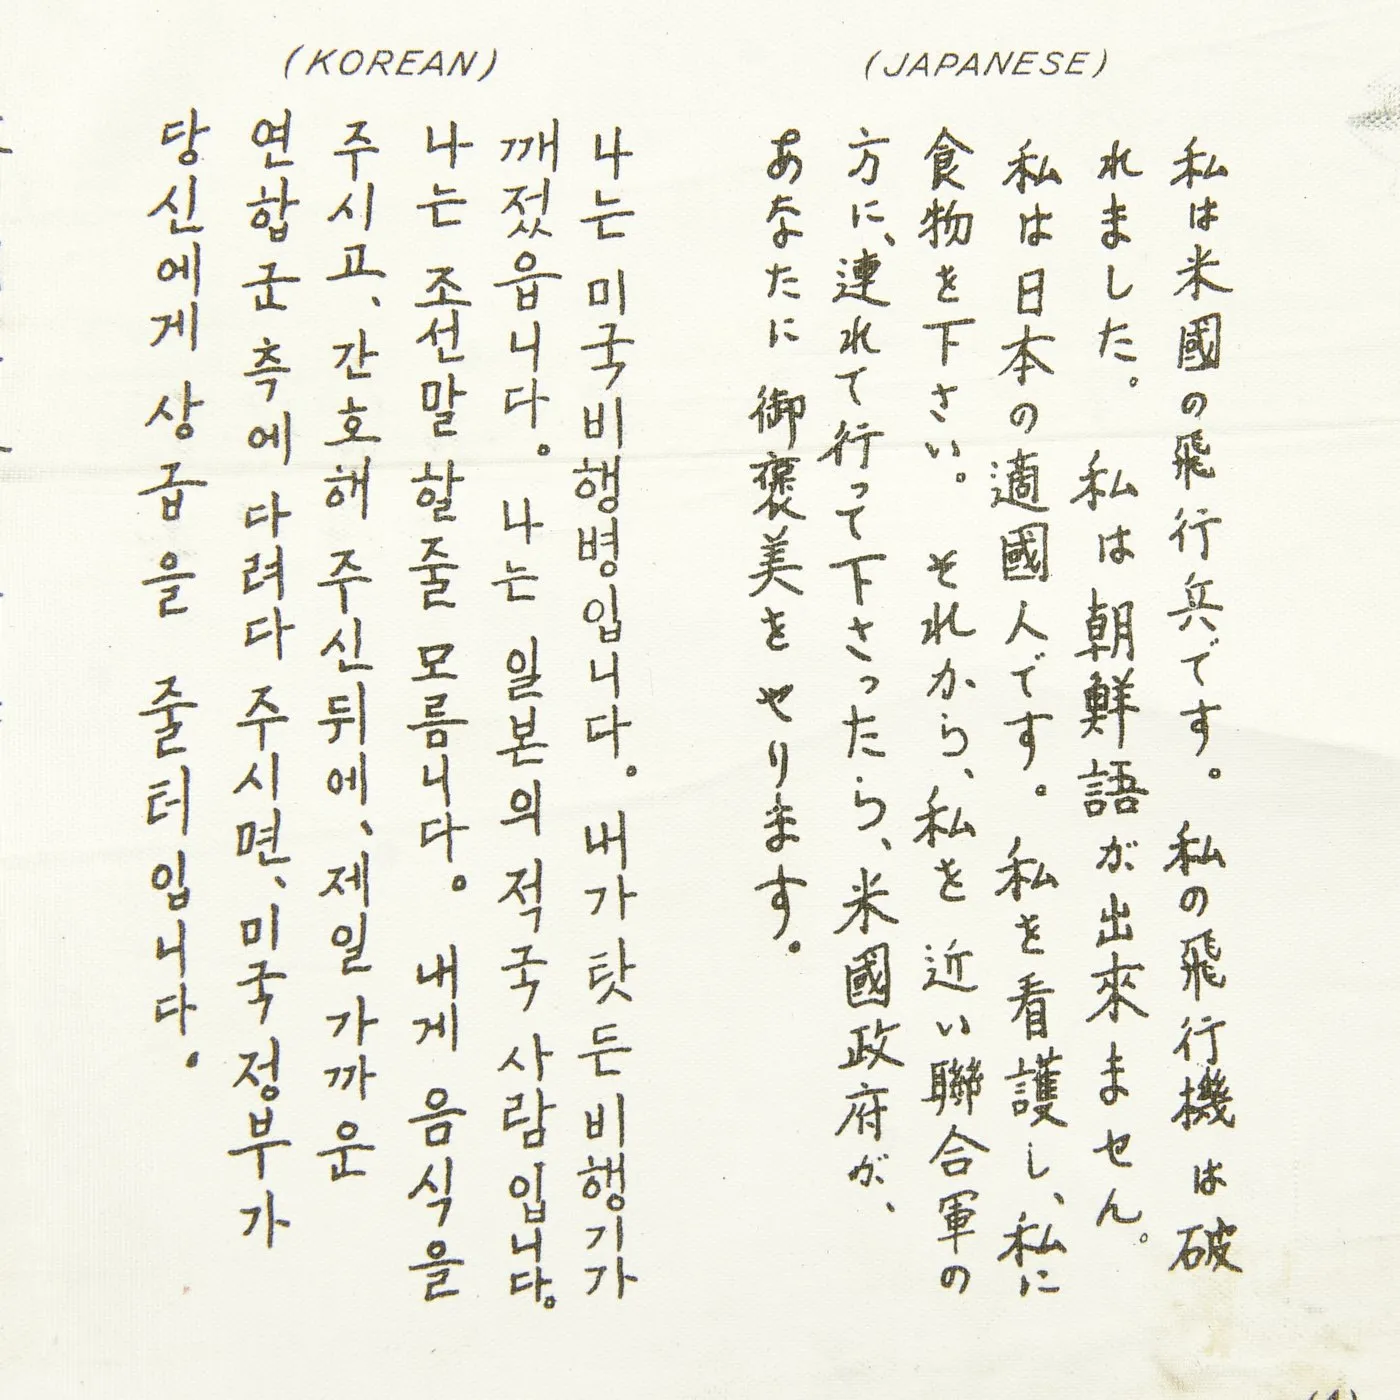 (JAPANESE)
私は米國の飛行兵です。私の飛行機は破
れました。私は朝鮮語が出來ません。
私は日本の適國人です。私を看護し、私に
食物を下さい。それから、私を近い聯合軍の
方に、連れて行って下さったら、米國政府が、
あなたに御褒美をやります。
(KOREAN)
나는 미국비행병입니다。 내가 탓든 비행기가
깨졌읍니다。 나는 일본의 적국 사람입니다。
나는 조선말 할줄 모름니다。 내게 음식을
주시고、 간호해 주신뒤에、 제일 가까운
연합군측에 다려다 주시면、 미국정부가
당신에게 상급을 줄터입니다。